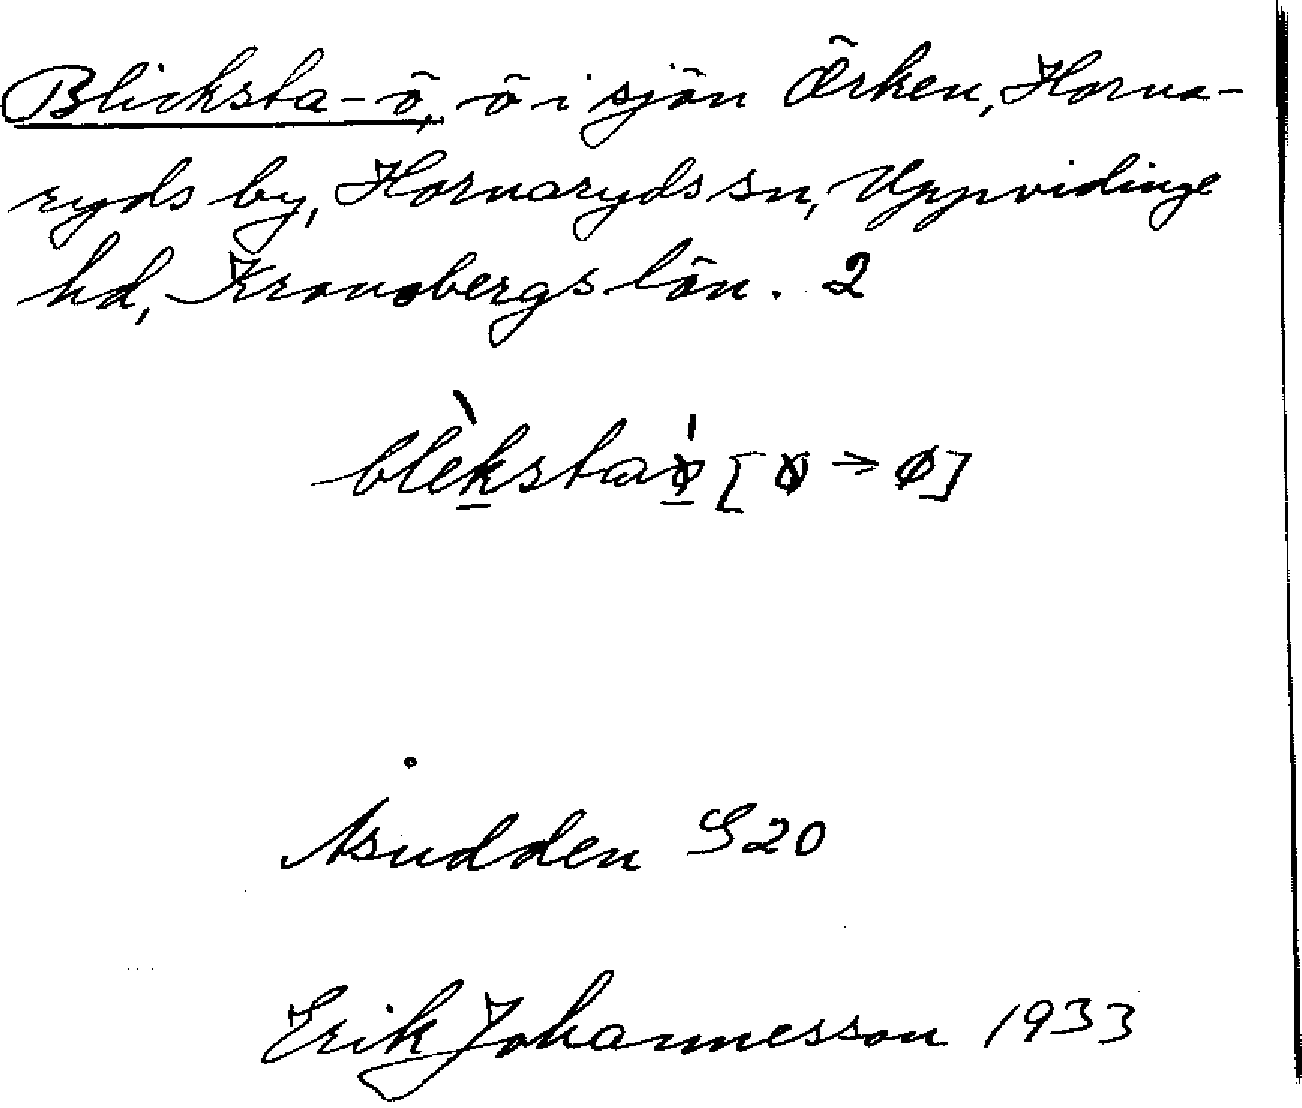 Blicksta-ö, ö i sjön Örken, Horna-
ryds by, Hornaryds sn, Uppvidinge
hd, Kronobergs län. 2
blèkstaø̍ [ꝏ → ø]
Åsudden S20
Erik Johannesson 1933